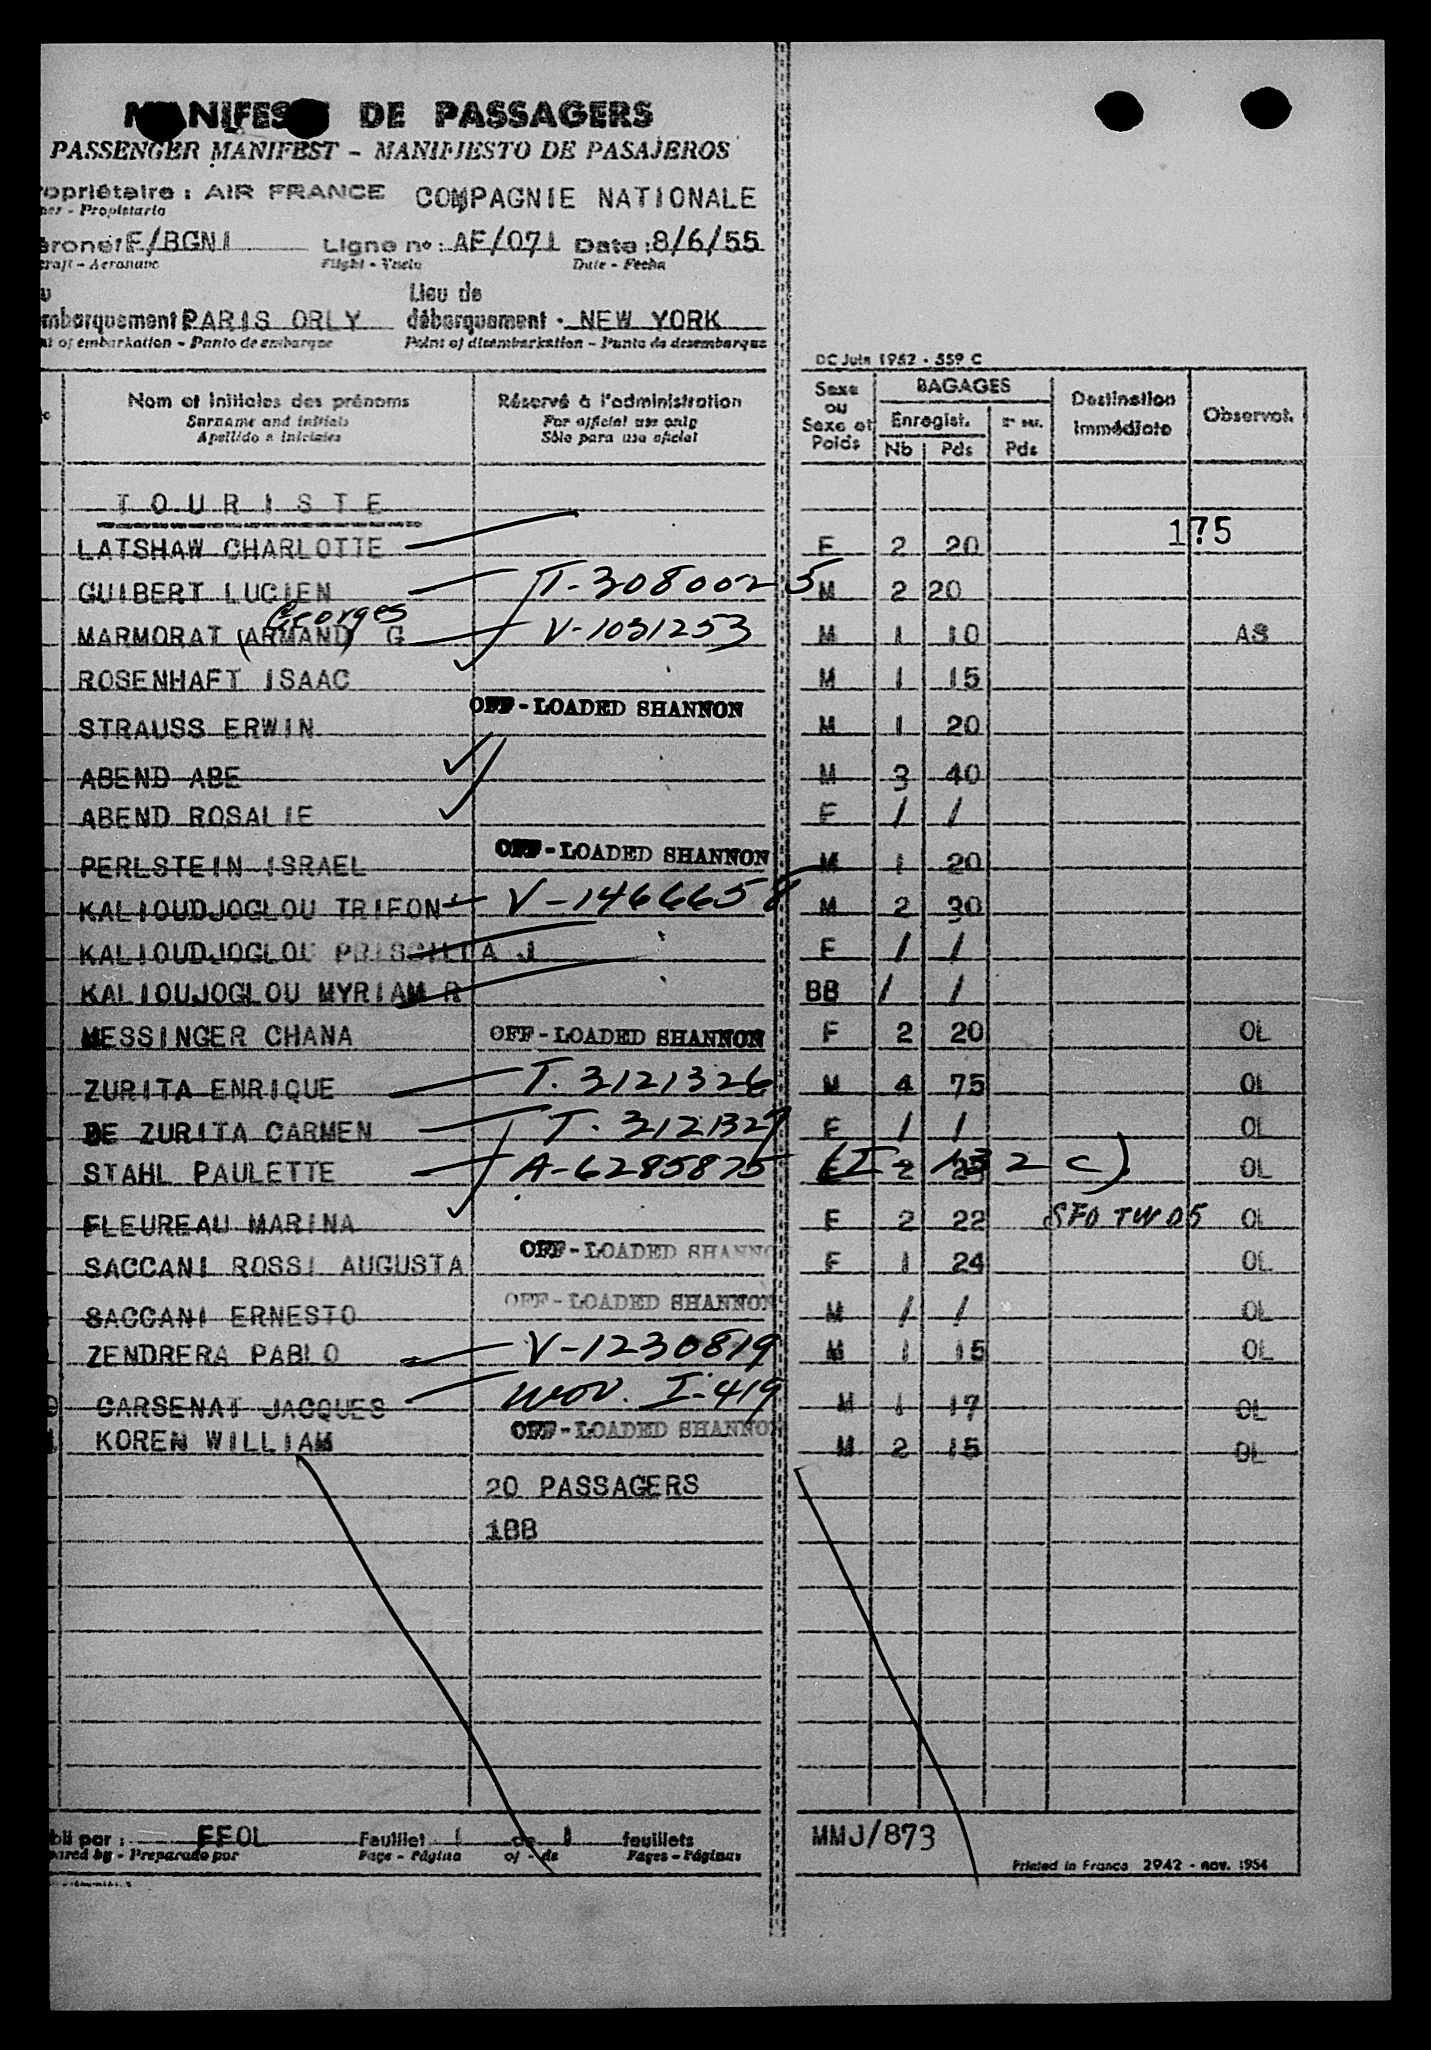 MANIFESTE DE PASSAGERS
PASSENGER MANIFEST - MANIFIESTO DE PASAJEROS
opriétaire : AIR FRANCE COMPAGNIE NATIONALE
ner - Propietario
éronef F/BGNI Ligne n° : AF/071 Date : 8/6/55
craft - Aeronave Flight - Vuelo Date - Fecha
u Lieu de
mbarquement : PARIS ORLY débarquement - NEW YORK
nt of embarkation - Punto de embarque Point of disembarkation - Punto de desembarque
DC Juin 1952 - 559 C
Nom et initiales des prénoms Réservé à l'administration Sexe ou Sexe et Poids BAGAGES Destination immédiate Observat.
Surname and initials For official use only Enregist.
Apellido e iniciales Sólo para uso oficial Nb Pds Pds
TOURISTE
175
LATSHAW CHARLOTTE F 2 20
GUIBERT LUCIEN T-3080025 M 2 20
Georges
MARMORAT (ARMAND) G V-1031253 M 1 10 AS
ROSENHAFT ISAAC M 1 15
STRAUSS ERWIN OFF-LOADED SHANNON M 1 20
ABEND ABE M 3 40
ABEND ROSALIE F / /
PERLSTEIN ISRAEL OFF-LOADED SHANNON M 1 20
KALIOUDJOGLOU TRIFON V-1466658 M 2 30
KALIOUDJOGLOU PRISCILLA J F / /
KALIOUJOGLOU MYRIAM R BB / /
MESSINGER CHANA OFF-LOADED SHANNON F 2 20 OL
ZURITA ENRIQUE T-3121326 M 4 75 OL
DE ZURITA CARMEN T-3121327 F / / OL
STAHL PAULETTE A-6285875 (I-132 C) F 2 23 OL
FLEUREAU MARINA F 2 22 SFO TW 05 OL
SACCANI ROSSI AUGUSTA OFF-LOADED SHANNON F 1 24 OL
SACCANI ERNESTO OFF-LOADED SHANNON M / / OL
ZENDRERA PABLO V-1230819 M 1 15 OL
GARSENAT JACQUES I-419 M 1 17 OL
KOREN WILLIAM OFF-LOADED SHANNON M 2 15 OL
20 PASSAGERS
1BB
bli par : FFOL Feuillet 1 de 1 feuillets MMJ/873
ared by - Preparado por Page - Página of - de Pages - Páginas Printed in France 2942 - nov. 1954